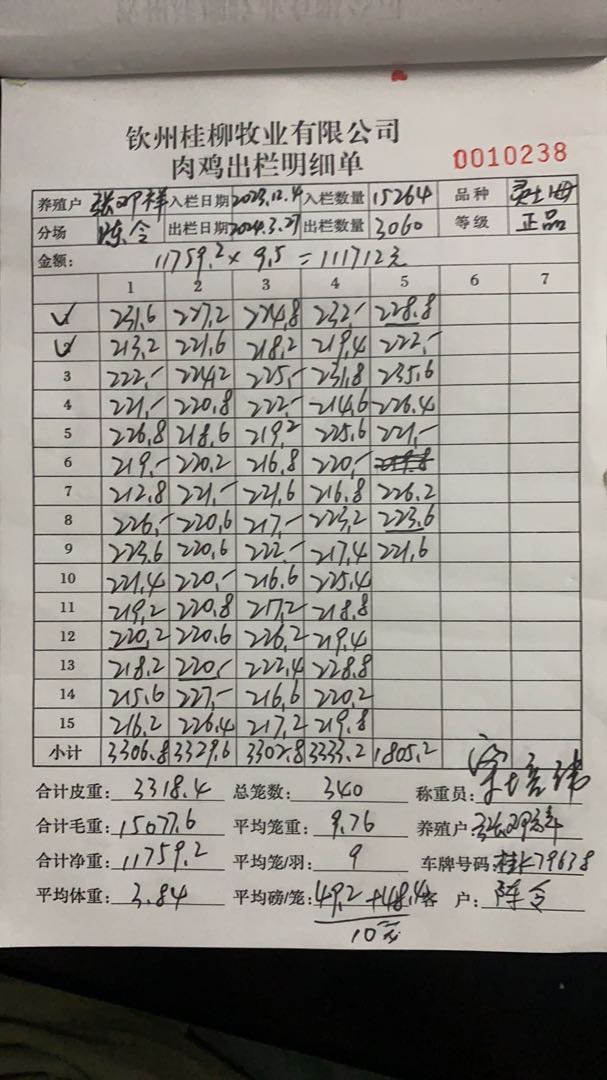 钦州桂柳牧业有限公司
肉鸡出栏明细单
0010238
养殖户 张邓祥 入栏日期 2023.12.4 入栏数量 15264 品种
分场 陈令 出栏日期 2024.3.27 出栏数量 3060 等级 正品
金额: 11759.2 × 9.5 = 111712元
1 2 3 4 5 6 7
231.6 227.2 224.8 232.- 228.8
213.2 221.6 218.2 219.4 222.-
3 222.- 224.2 225.- 231.8 235.6
4 221.- 220.8 222.- 214.6 226.4
5 226.8 218.6 219.2 225.6 221.-
6 219.- 220.2 216.8 220.-
7 212.8 221.- 221.6 216.8 226.2
8 226.- 220.6 217.- 223.2 223.6
9 223.6 220.6 222.- 217.4 221.6
10 221.4 220.- 216.6 225.4
11 219.2 220.8 217.2 218.8
12 220.2 220.6 226.2 219.4
13 218.2 220.- 222.4 228.8
14 215.6 227.- 216.6 220.2
15 216.2 226.4 217.2 219.8
小计 3306.8 3329.6 3302.8 3333.2 1805.2
合计皮重: 3318.4 总笼数: 340 称重员:
合计毛重: 15077.6 平均笼重: 9.76 养殖户:
合计净重: 11759.2 平均笼/羽: 9 车牌号码: 桂K79638
平均体重: 3.84 平均磅/笼: 49.2+48.4 客 户: 陈令
10元